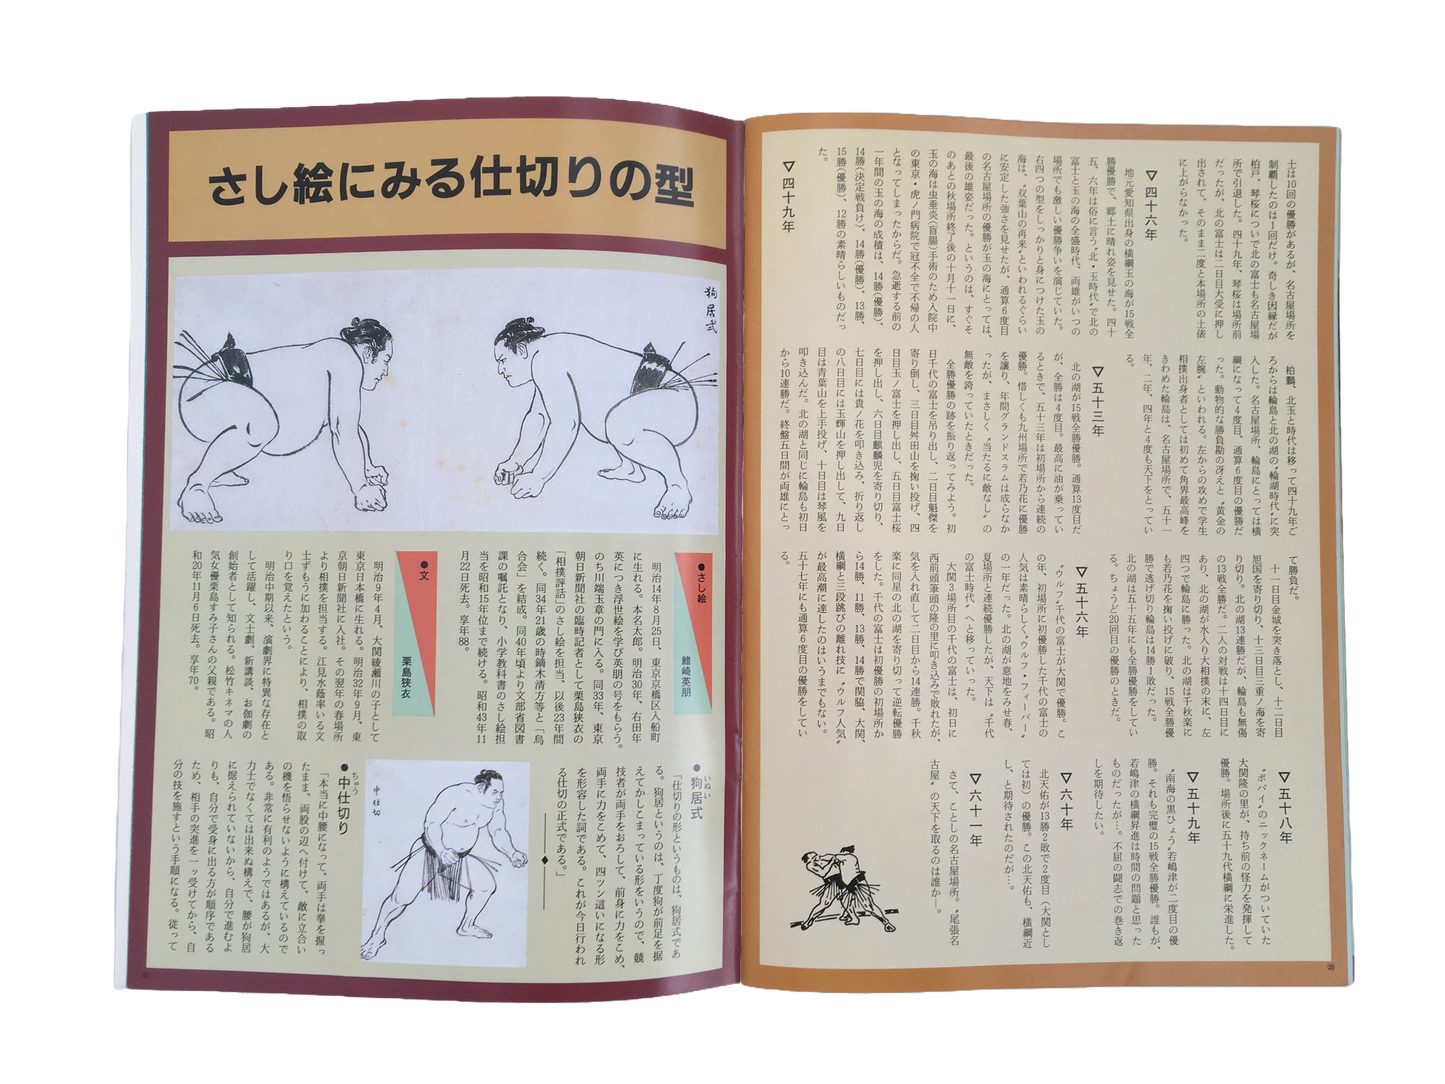 士は10回の優勝があるが、名古屋場所を
制覇したのは1回だけ。奇しき因縁だが
柏戸、琴桜についで北の富士も名古屋場
所で引退した。四十九年、琴桜は場所前
だったが、北の富士は二日目大受に押し
出されて、そのまま二度と本場所の土俵
に上がらなかった。
▽四十六年
地元愛知県出身の横綱玉の海が15戦全
勝優勝で、郷土に晴れ姿を見せた。四十
五、六年は俗に言う〝北・玉時代〟で北の
富士と玉の海の全盛時代、両雄がいつの
場所でも激しい優勝争いを演じていた。
右四つの型をしっかりと身につけた玉の
海は、〝双葉山の再来〟といわれるぐらい
に安定した強さを見せたが、通算6度目
の名古屋場所の優勝が玉の海にとっては、
最後の雄姿だった。というのは、すぐそ
のあとの秋場所終了後の十月十一日に、
玉の海は虫垂炎(盲腸)手術のため入院中
の東京・虎ノ門病院で冠不全で不帰の人
となってしまったからだ。急逝する前の
一年間の玉の海の成積は、14勝(優勝)、
14勝(決定戦負け)、14勝(優勝)、13勝、
15勝(優勝)、12勝の素晴らしいものだっ
た。
▽四十九年
柏鵬、北玉と時代は移って四十九年ご
ろからは輪島と北の湖の〝輪湖時代〟に突
入した。名古屋場所、輪島にとっては横
綱になって4度目、通算6度目の優勝だ
った。動物的な勝負勘の冴えと〝黄金の
左腕〟といわれる。左からの攻めで学生
相撲出身者としては初めて角界最高峰を
きわめた輪島は、名古屋場所で、五十一
年、二年、四年と4度も天下をとってい
る。
▽五十三年
北の湖が15戦全勝優勝。通算13度目だ
が、全勝は4度目。最高に油が乗ってい
るときで、五十三年は初場所から連続の
優勝。惜しくも九州場所で若乃花に優勝
を譲り、年間グランドスラムは成らなか
ったが、まさしく〝当たるに敵なし〟の
無敵を誇っていたときだった。
全勝優勝の跡を振り返ってみよう。初
日千代の富士を吊り出し、二日目魁傑を
寄り倒し、三日目舛田山を掬い投げ、四
日目玉ノ富士を押し出し、五日目富士桜
を押し出し、六日目麒麟児を寄り切り、
七日目には貴ノ花を叩き込み、折り返し
の八日目には玉輝山を押し出して、九日
目は青葉山を上手投げ、十日目は琴風を
叩き込んだ。北の湖と同じに輪島も初日
から10連勝だ。終盤五日間が両雄にとっ
て勝負だ。
十一日目金城を突き落とし、十二日目
旭国を寄り切り、十三日目三重ノ海を寄
り切り。北の湖13連勝だが、輪島も無傷
の13戦全勝だ。二人の対戦は十四日目に
あり、北の湖が水入り大相撲の末に、左
四つで輪島に勝った。北の湖は千秋楽に
も若乃花を掬い投げに破り、15戦全勝優
勝で逃げ切り輪島は14勝1敗だった。
北の湖は五十五年にも全勝優勝をしてい
る。ちょうど20回目の優勝のときだ。
▽五十六年
〝ウルフ〟千代の富士が大関で優勝。こ
の年、初場所に初優勝した千代の富士の
人気は素晴らしく〝ウルフ・フィーバー〟
の一年だった。北の湖が意地をみせ春、
夏場所と連続優勝したが、天下は〝千代
の富士時代〟へと移っていった。
大関3場所目の千代の富士は、初日に
西前頭筆頭の隆の里に叩き込みで敗れたが、
気を入れ直して二日目から14連勝。千秋
楽に同星の北の湖を寄り切って逆転優勝
をした。千代の富士は初優勝の初場所か
ら14勝、11勝、13勝、14勝で関脇、大関、
横綱と三段跳びの離れ技に〝ウルフ人気〟
が最高潮に達したのはいうまでもない。
五十七年にも通算6度目の優勝をしてい
る。
▽五十八年
〝ポパイ〟のニックネームがついていた
大関隆の里が、持ち前の怪力を発揮して
優勝。場所後に五十九代横綱に栄進した。
▽五十九年
〝南海の黒ひょう〟若嶋津が二度目の優
勝。それも完璧の15戦全勝優勝。誰もが、
若嶋津の横綱昇進は時間の問題と思った
ものだったが…。不屈の闘志での巻き返
しを期待したい。
▽六十年
北天佑が13勝2敗で2度目(大関とし
ては初)の優勝。この北天佑も、横綱近
し、と期待されたのだが…。
▽六十一年
さて、ことしの名古屋場所。〝尾張名
古屋〟の天下を取るのは誰か―。
さし絵にみる仕切りの型
狗居式
●さし絵
鰭崎英朋
明治14年8月25日、東京京橋区入船町
に生れる。本名太郎。明治30年、右田年
英につき浮世絵を学び英朋の号をもらう。
のち川端玉章の門に入る。同33年、東京
朝日新聞社の臨時記者として栗島狭衣の
「相撲評話」のさし絵を担当、以後23年間
続く。同34年21歳の時鏑木清方等と「烏
合会」を結成。同40年頃より文部省図書
課の嘱託となり、小学教科書のさし絵担
当を昭和15年位まで続ける。昭和43年11
月22日死去。享年88。
●文
栗島狭衣
明治9年4月、大関綾瀬川の子として
東京日本橋に生れる。明治32年9月、東
京朝日新聞社に入社。その翌年の春場所
より相撲を担当する。江見水蔭率いる文
士ずもうに加わるとにより、相撲の取
り口を覚えたという。
明治中期以来、演劇界に特異な存在と
して活躍し、文士劇、新講談、お伽劇の
創始者として知られる。松竹キネマの人
気女優栗島すみ子さんの父親である。昭
和20年11月6日死去。享年70。
●狗居式
いぬい
「仕切りの形というものは、狗居式であ
る。狗居というのは、丁度狗が前足を据
えてかしこまっている形をいうので、競
技者が両手をおろして、前身に力をこめ、
両手に力をこめて、四ツン這いになる形
を形容した詞である。これが今日行われ
る仕切の正式である。」
中仕切
●中仕切り
ちゅう
「本当に中腰になって、両手は拳を握っ
たまま、両股の辺へ付けて、敵に立合い
の機を悟らせないように構えているので
ある。非常に有利のようではあるが、大
力士でなくては出来ぬ構えで、腰が狗居
に据えられていないから、自分で進むよ
りも、自分で受身に出る方が順序である
ため、相手の突進を一ッ受けてから、自
分の技を施すという手順になる。従って